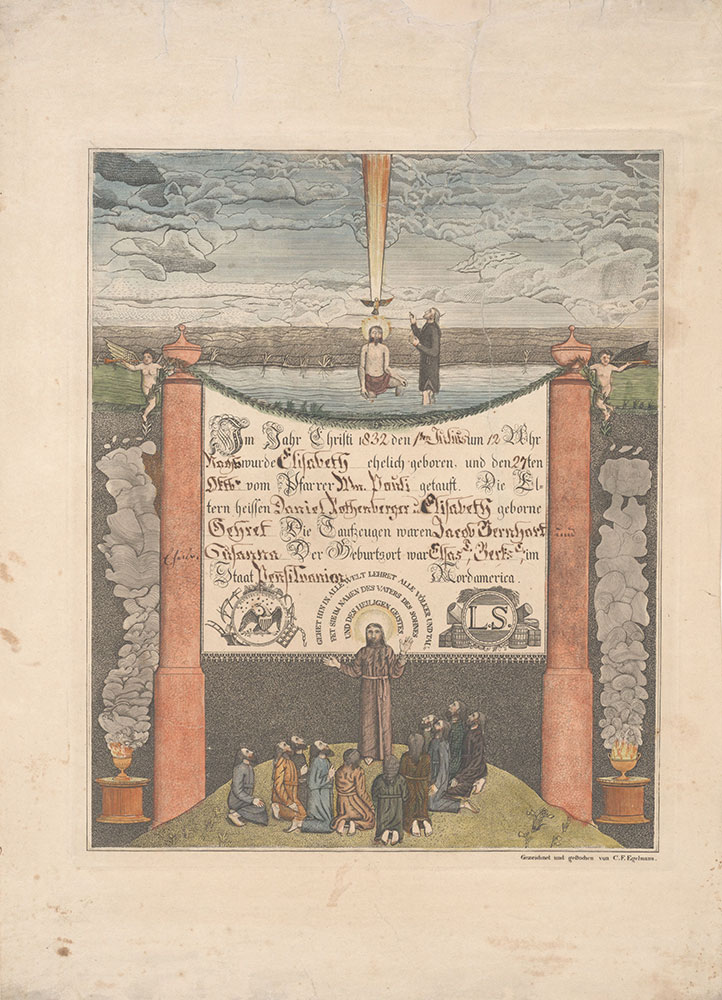 Im Jahr Christi 1832 den 1ten Julius um 12 Uhr
Nachts wurde Elisabeth ehelich geboren, und den 27ten
Octbr vom Pfarrer Wm. Pauli getauft. Die El-
tern heissen Daniel Rothenberger u. Elisabeth geborne
Gehret Die Taufzeugen waren Jacob Bernhart und
Susanna. Der Geburtsort war Elsas Berks Cy. im
Staat Pensilvanien Nordamerica.
GEHET HIN IN ALLE WELT LEHRET ALLE VÖLKER UND TAU-
FET SIE IM NAMEN DES VATERS DES SOHNES
UND DES HEILIGEN GEISTES
L.S.
Gezeichnet und gestochen von C. F. Egelmann.